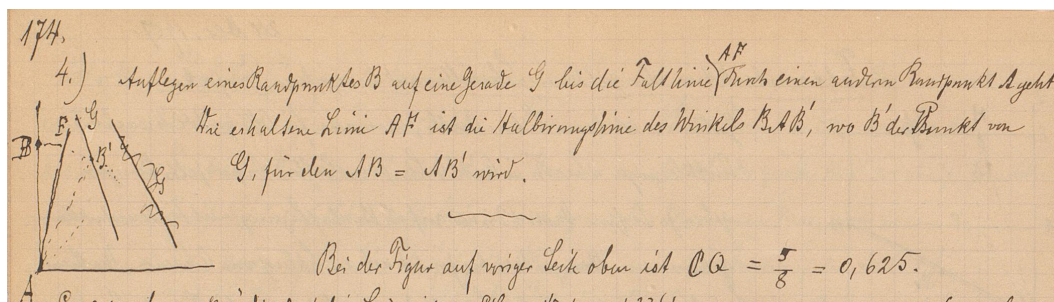 174.
4.) Auflegen eines Randpunktes B auf eine Gerade G bis die Faltlinie AF durch einen andern Randpunkt A geht
Die erhaltene Linie AF ist die Halbirungslinie des Winkels BAB', wo B' der Punkt von
G, für den AB = AB' wird.
F G
B B'
A
Bei der Figur auf voriger Seite oben ist CQ = 5/8 = 0,625.